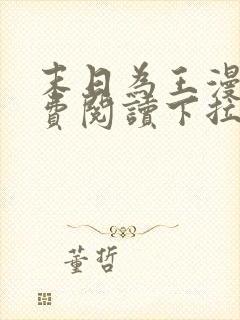 末日為王漫
費閱讀下拉
董哲